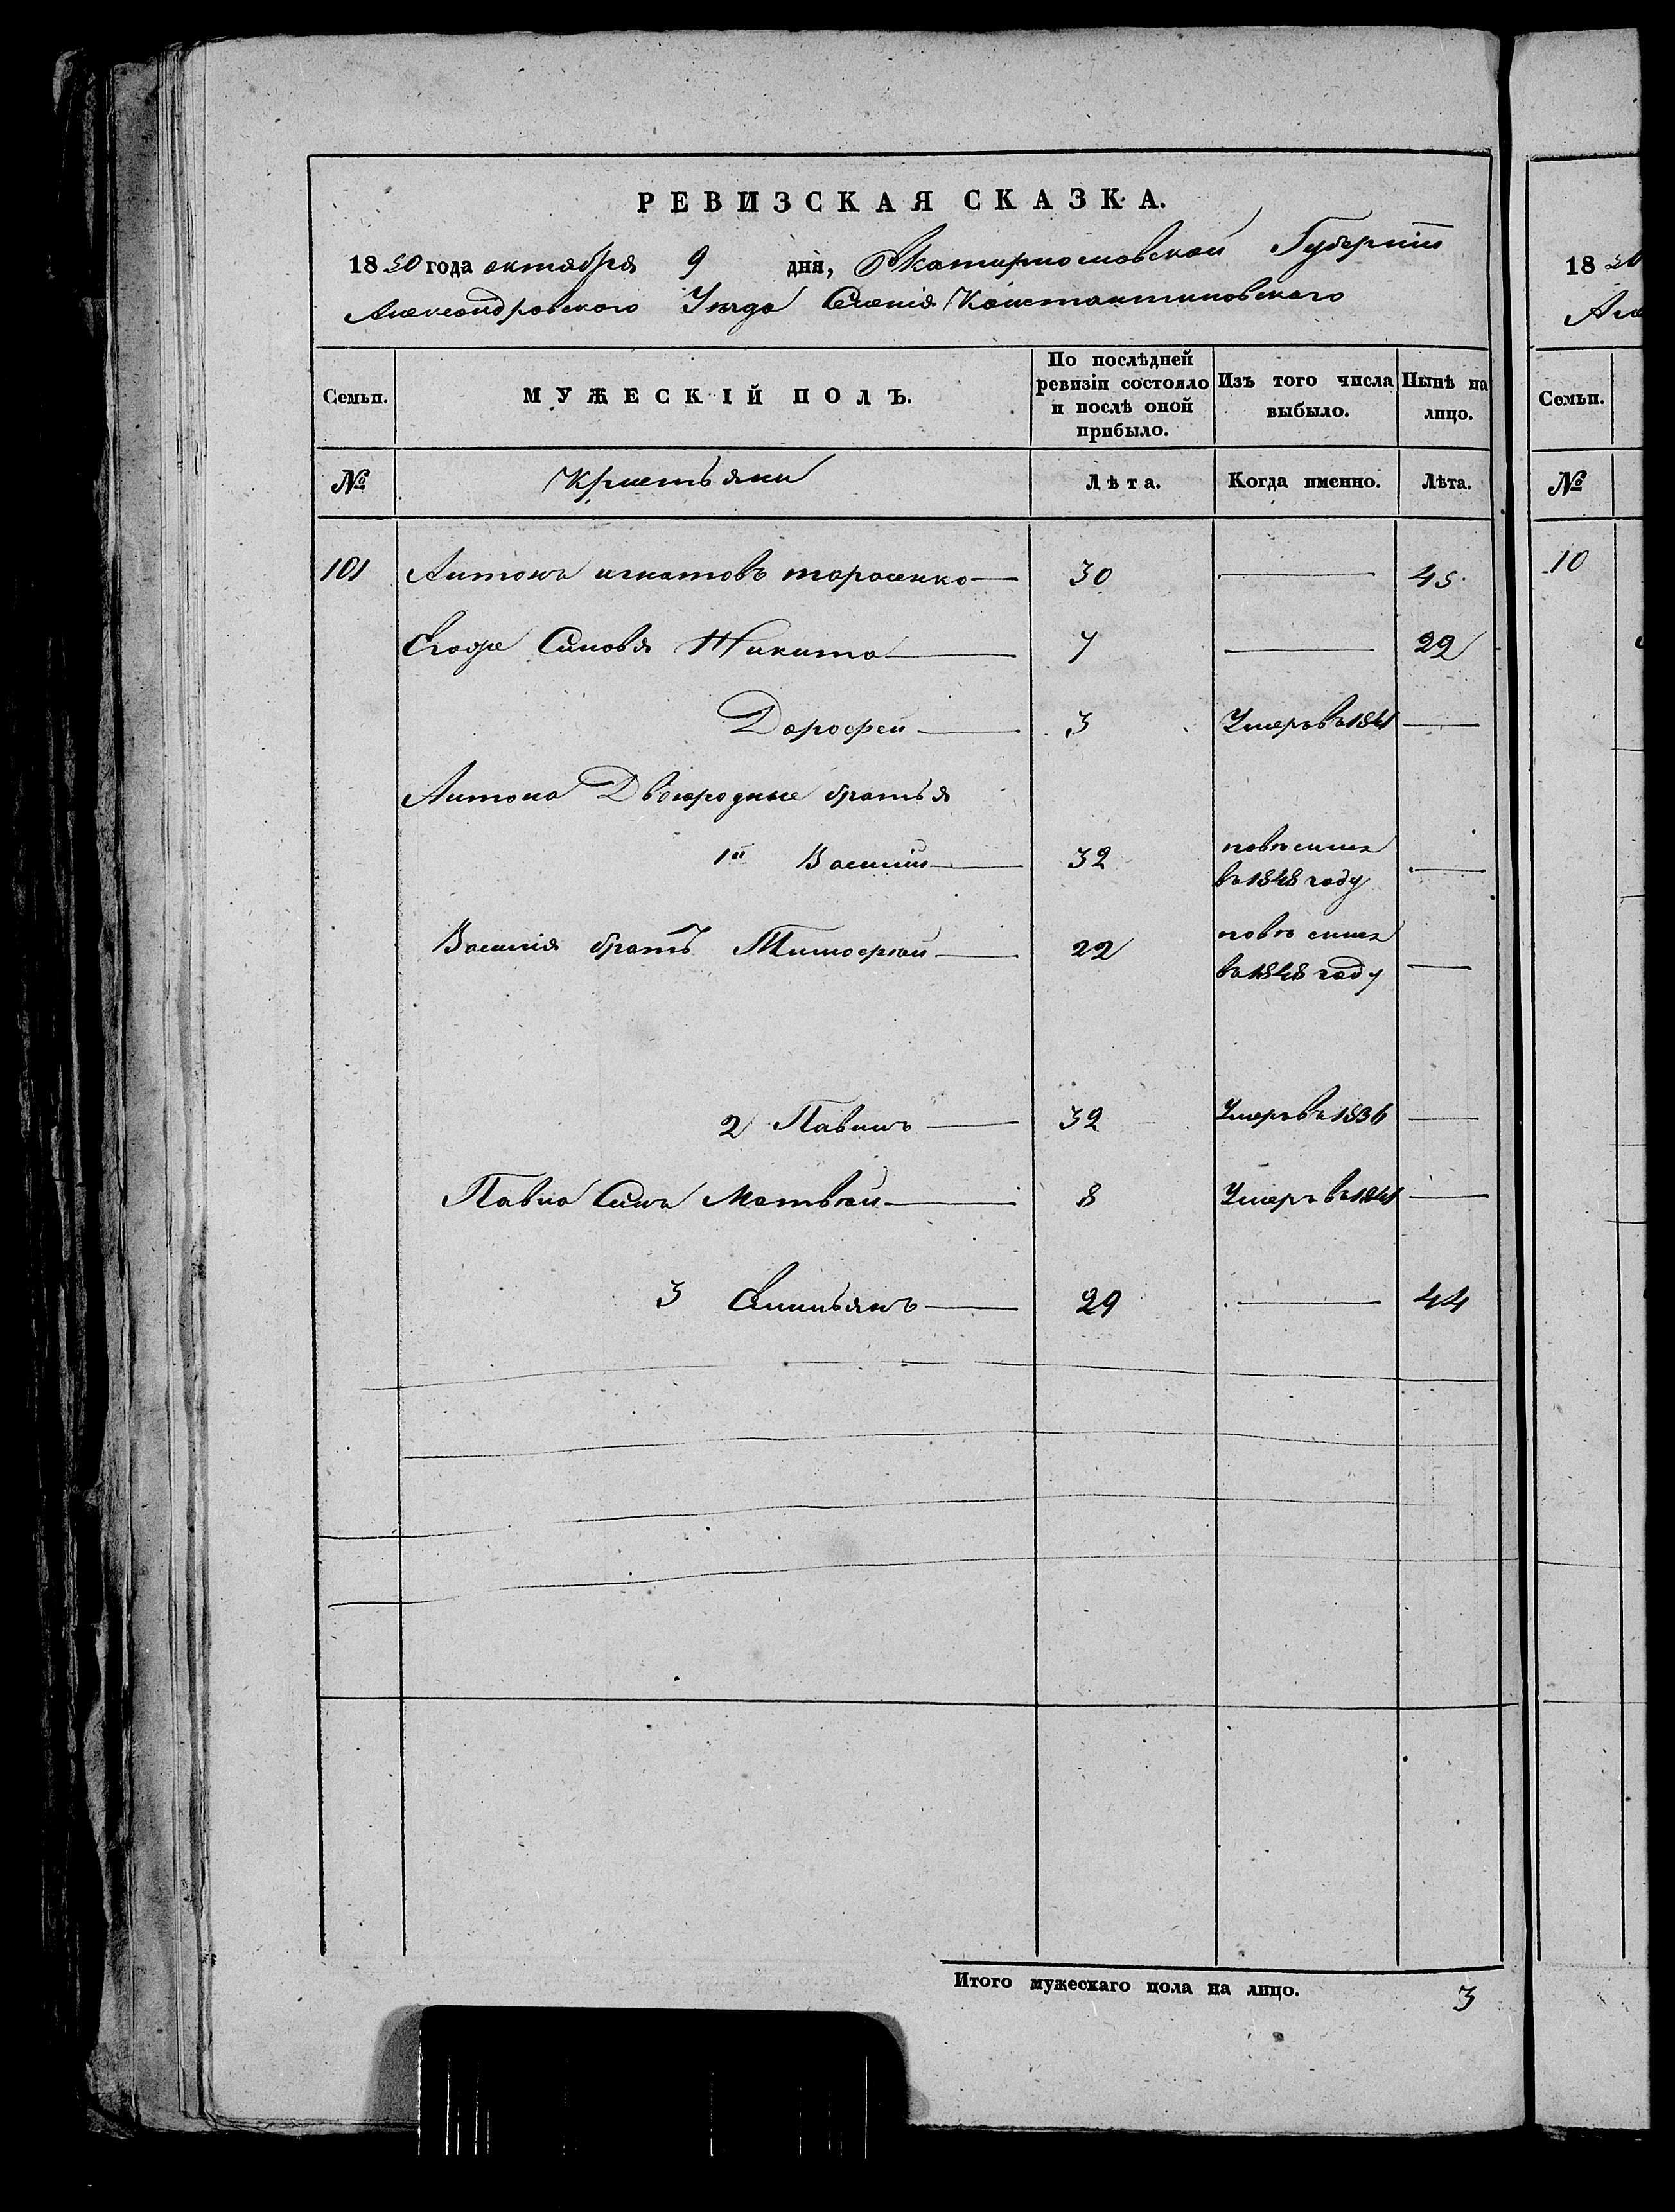 РЕВИЗСКАЯ СКАЗКА.
1850 года октября 9 дня, Екатиринославской Губерніи
Александровского Уезда Селенія Константиновского
Семьи. МУЖЕСКІЙ ПОЛЪ. По послѣдней ревизіи состояло и послѣ оной прибыло. Изъ того числа выбыло. Нынѣ на лицо.
№ Крестьяни Лѣта. Когда именно. Лѣта.
101 Антонъ игнатовъ тарасенко 30 45
Егоже Синовя Никита 7 22
Дорофеи 3 Умеръ въ 1841
Антона Двоюродные братья
1й Василіи 32 повъ
въ 1848 году
Василія братъ Тимофѣи 22 повъ
въ 1848 году
2 Павилъ 32 Умеръ въ 1836
Павла Синъ Матвѣи 8 Умеръ въ 1841
3 Емильянъ 29 44
Итого мужескаго пола на лицо. 3
18 50
Але
Семьи.
№
10